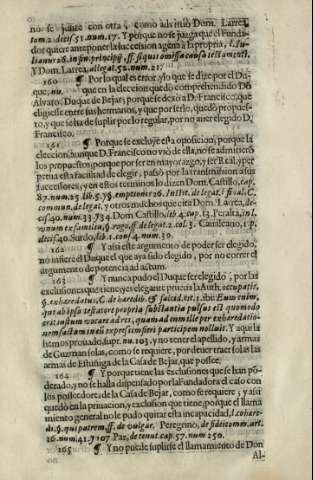 no se junte con otra, como advirtio Dom. Larrea,
tom.2. decis.51. num.17. Y porque no se juzga que el Funda-
dor quiere anteponer la succession agena à la propria, l.
lianus 26. in fin. principij, ff. si quis omissa causa testamenti,
Y Dom. Larrea, allegat.52. num.21.
160 ¶ Por lo qual es error, y lo que se dize por el Du-
que, que en la eleccion quedò comprehendido D.
Alvaro, Duque de Bejar, porque se dexò a D. Francisco, que
eligiesse entre sus hermanos, y que por serlo, quedò propues-
to, y que se ha de suplir por lo regular, por no aver elegido D.
Francisco.
161 ¶ Porque se excluye esta oposicion, porque la
eleccion, aunque D. Francisco no usò de esta, no se admitiò à
los propuestos, porque por ser en mayorazgo, y ser Real, y per
petua esta facultad de elegir, passò por la transmission a sus
successores, y en estos terminos lo dizen Dom. Castillo, cap.
87. num.23. lib.5.
commun. de legat. y otros muchos que cita Dom. Larrea, de-
cis.40. num.33. 734. Dom. Castillo, lib.4. cap.13. Peralta, in l.
unum ex familia, §. rogo, ff. de legat.2. col.3. 1. p.
decis.40. Surdo, lib.1. cons.4. num.30.
162 ¶ Y assi este argumento de poder ser elegido,
no infiere del Duque el que aya sido elegido, por no correr el
argumento de potencia ad actum.
163 ¶ Y nunca pudo el Duque ser elegido, por las
exclusiones que tiene; y es elegante prueba la Auth.
§. exheredatus, C. de haered. ibi: Eum enim,
qui ab ipso testatore propria substantia pulsus est quomodo
erit iustum vocare adres, quam ad nomille per exheredatio-
nem factam in eis expressim fieri participem nolluit. Y aqui la
hemos provado, supr. nu.103. y no tener el apellido, y armas
de Guzman solas, como se requiere, por dever traer solas las
armas de Estuñiga de la Casa de Bejar, que possee.
164 ¶ Y porque tiene las exclusiones que se han po-
derado, y no se halla dispensado por la Fundadora el caso con
los posseedores de la Casa de Bejar, como se requiere; y assi
quedò en la privacion, y exclusion que tiene, porque el llama
miento general no le pudo quitar esta incapacidad, l. cohere-
di, §. qui patrem, ff. de vulgar. Peregrino, de fideicomm. art.
16. num.41. 7107 Paz, de tenut. cap.57. num.250.
165 ¶ Y no puede suplirse el llamamiento de Don
Al-